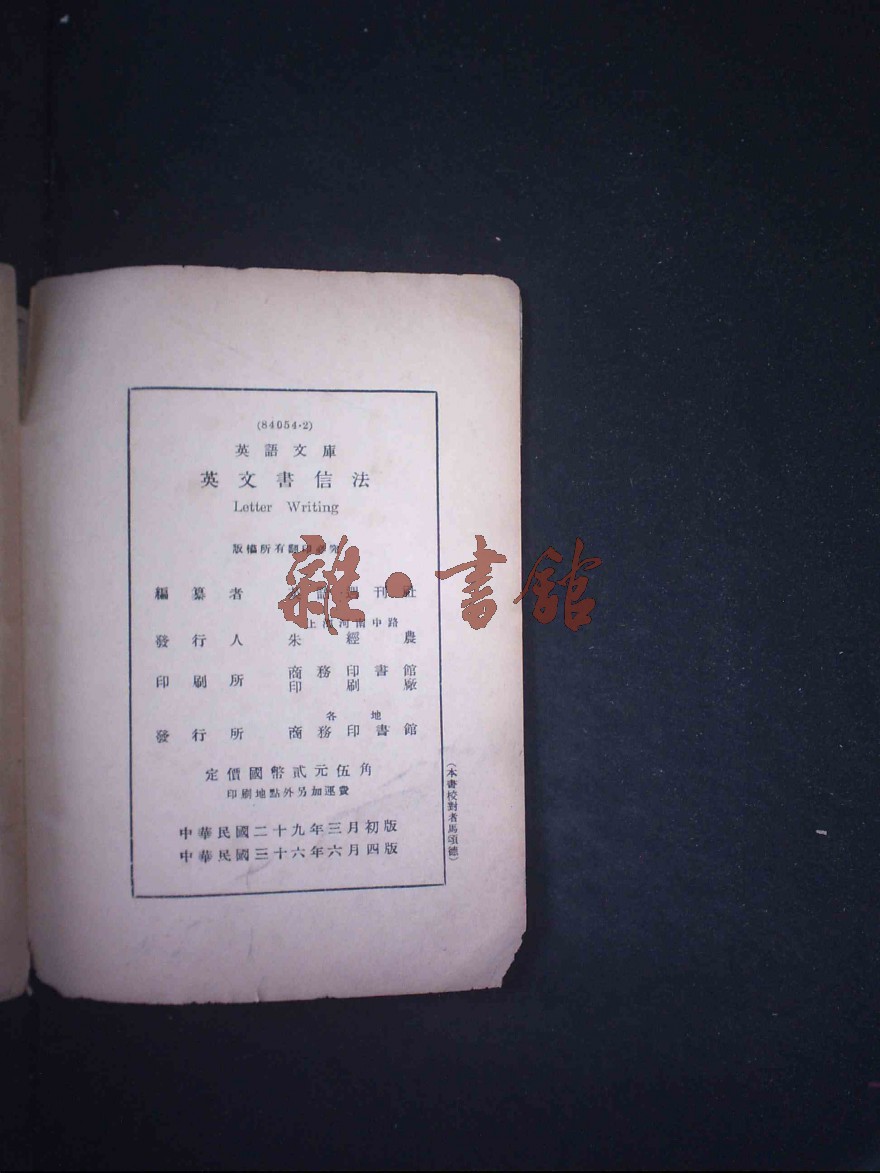 (84054·2)
英語文庫
英文書信法
Letter Writing
版權所有翻印必究
編纂者 英語週刊社
上海河南中路
發行人 朱經農
印刷所 商務印書館
印刷廠
各地
發行所 商務印書館
定價國幣貳元伍角
印刷地點外另加運費
中華民國二十九年三月初版
中華民國三十六年六月四版
(本書校對者馬頌德)
雜·書館